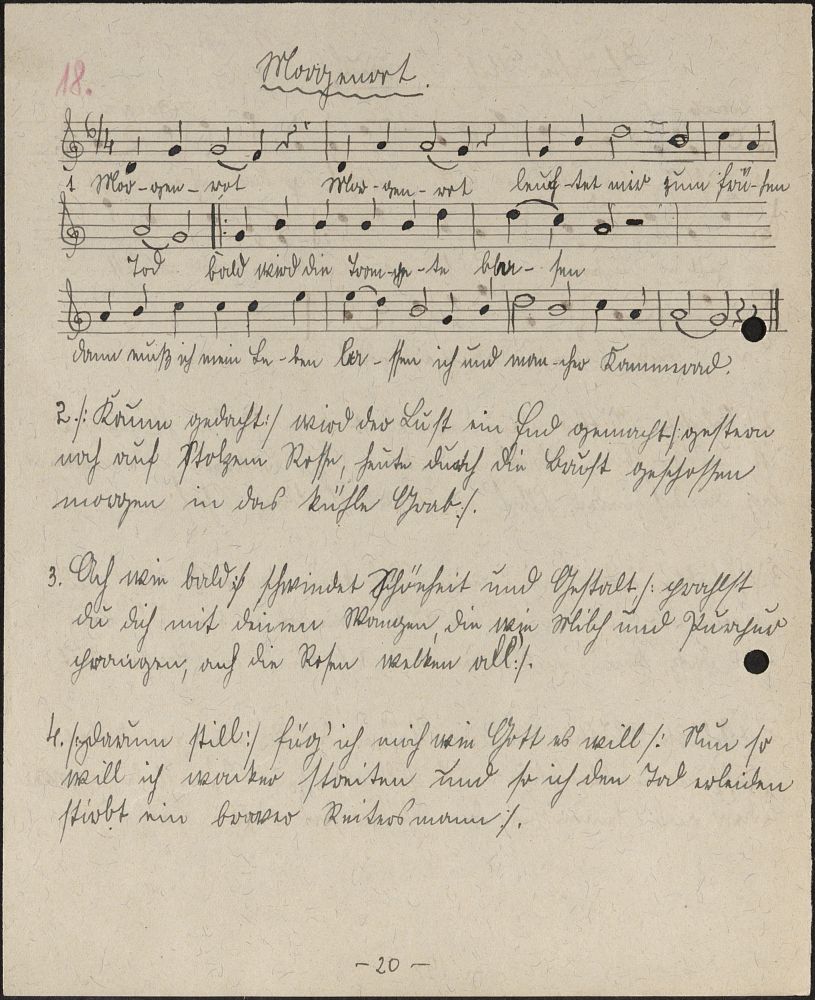 18.
Morgenrot.
6/4
1 Mor-gen-rot Mor-gen-rot leuch-tet mir zum frü-hen
Tod bald wird die Trom-pe-te bla-sen
dann muß ich mein Le-ben las-sen ich und man-cher Kammerad.
2./: Kaum gedacht :/ wird der Lust ein End gemacht /: gestern
noch auf stolzem Rosse, heute durch die Brust geschossen
morgen in das kühle Grab :/.
3. Ach wie bald :/ schwindet Schönheit und Gestalt /: prahlst
du dich mit deinen Wangen, die wie Milch und Purpur
prangen, ach die Rosen welken all :/.
4. /: darum still :/ füg' ich mich wie Gott es will /: Nun so
will ich wacker streiten und so ich den Tod erleiden
stirbt ein braver Reitersmann :/.
- 20 -